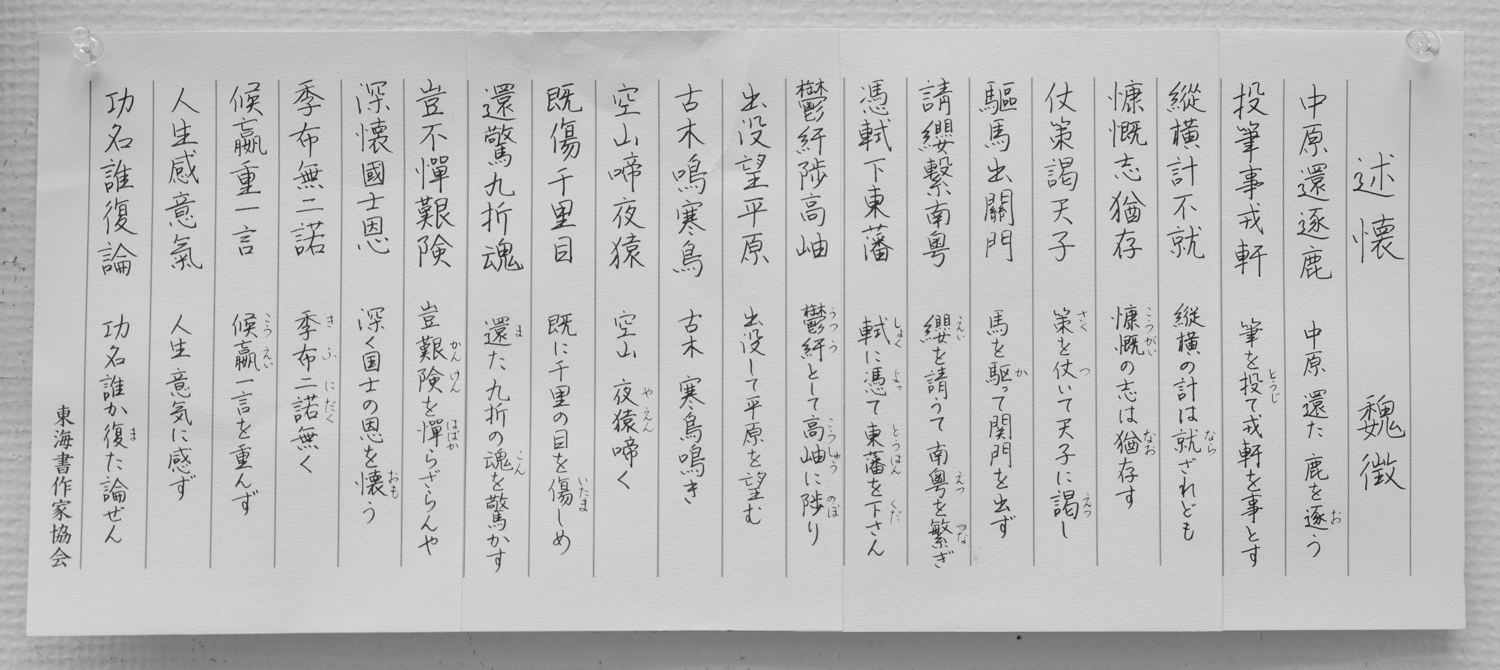 述懐 魏徴
中原還逐鹿 中原 還た 鹿を逐う
投筆事戎軒 筆を投て戎軒を事とす
縱横計不就 縦横の計は就ざれども
慷慨志猶存 慷慨の志は猶存す
仗策謁天子 策を仗いて天子に謁し
驅馬出關門 馬を駆って関門を出ず
請纓繋南粤 纓を請うて南粤を繋ぎ
憑軾下東藩 軾に憑て東藩を下さん
鬱紆陟高岫 鬱紆として高岫に陟り
出没望平原 出没して平原を望む
古木鳴寒鳥 古木 寒鳥鳴き
空山啼夜猿 空山 夜猿啼く
既傷千里目 既に千里の目を傷しめ
還驚九折魂 還た九折の魂を驚かす
豈不憚艱険 豈艱険を憚らざらんや
深懐國士恩 深く国士の恩を懐う
季布無二諾 季布二諾無く
候嬴重一言 候嬴一言を重んず
人生感意氣 人生意気に感ず
功名誰復論 功名誰か復た論ぜん
東海書作家協会